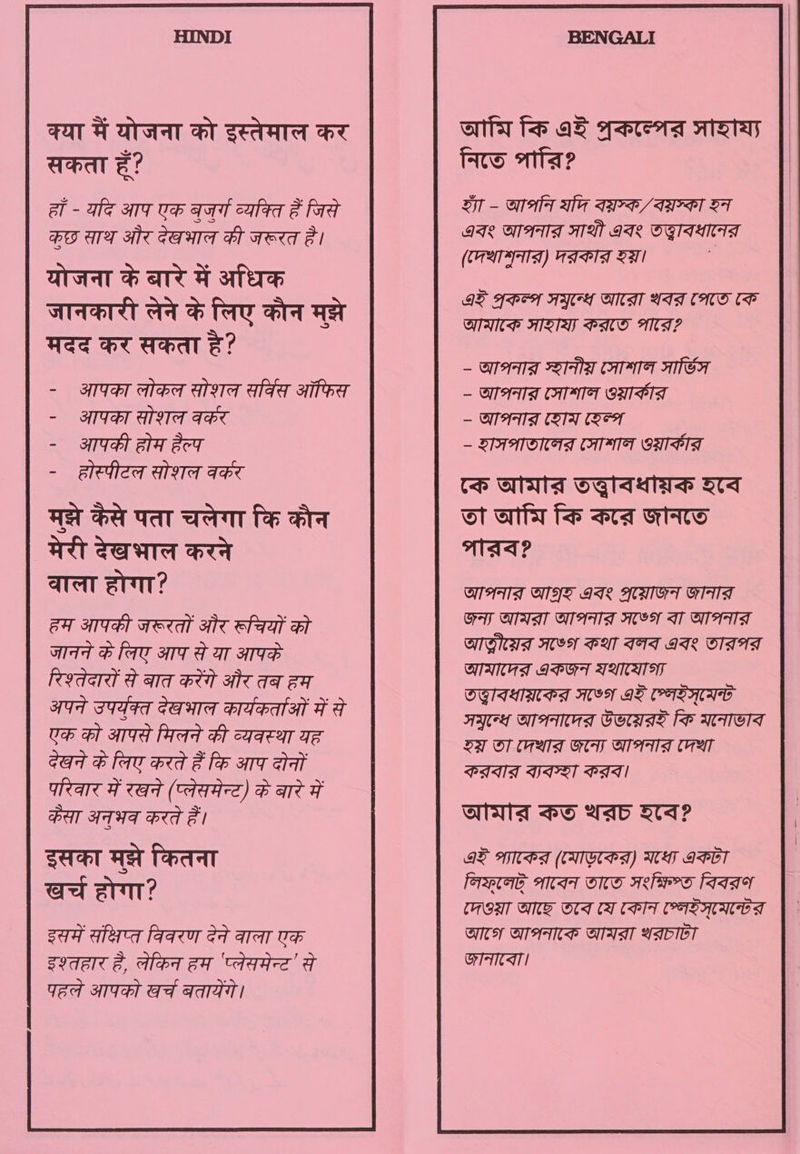 HINDI
क्या मैं योजना को इस्तेमाल कर
सकता हूँ?
हाँ - यदि आप एक बुजुर्ग व्यक्ति हैं जिसे
कुछ साथ और देखभाल की जरूरत है।
योजना के बारे में अधिक
जानकारी लेने के लिए कौन मुझे
मदद कर सकता है?
- आपका लोकल सोशल सर्विस ऑफिस
- आपका सोशल वर्कर
- आपकी होम हैल्प
- होस्पीटल सोशल वर्कर
मुझे कैसे पता चलेगा कि कौन
मेरी देखभाल करने
वाला होगा?
हम आपकी जरूरतों और रूचियों को
जानने के लिए आप से या आपके
रिश्तेदारों से बात करेंगे और तब हम
अपने उपर्युक्त देखभाल कार्यकर्ताओं में से
एक को आपसे मिलने की व्यवस्था यह
देखने के लिए करते हैं कि आप दोनों
परिवार में रखने (प्लेसमेन्ट) के बारे में
कैसा अनुभव करते हैं।
इसका मुझे कितना
खर्च होगा?
इसमें संक्षिप्त विवरण देने वाला एक
इश्तहार है, लेकिन हम 'प्लेसमेन्ट' से
पहले आपको खर्च बतायेंगे।
BENGALI
আমি কি এই প্রকল্পের সাহায্য
নিতে পারি?
হ্যাঁ – আপনি যদি বয়স্ক/বয়স্কা হন
এবং আপনার সাথী এবং তত্ত্বাবধানের
(দেখাশুনার) দরকার হয়।
এই প্রকল্প সমুন্ধে আরো খবর পেতে কে
আমাকে সাহায্য করতে পারে?
– আপনার স্হানীয় সোশাল সার্ভিস
– আপনার সোশাল ওয়ার্কার
– আপনার হোম হেল্প
– হাসপাতালের সোশাল ওয়ার্কার
কে আমার তত্ত্বাবধায়ক হবে
তা আমি কি করে জানতে
পারব?
আপনার আগ্রহ এবং প্রয়োজন জানার
জন্য আমরা আপনার সঙ্গে বা আপনার
আত্নীয়ের সঙ্গে কথা বলব এবং তারপর
আমাদের একজন যথাযোগ্য
তত্ত্বাবধায়কের সঙ্গে এই প্লেইস্‌মেন্ট
সমুন্ধে আপনাদের উভয়েরই কি মনোভাব
হয় তা দেখার জন্যে আপনার দেখা
করবার ব্যবস্হা করব।
আমার কত খরচ হবে?
এই প্যাকের (মোড়কের) মধ্যে একটা
লিফ্‌লেট্‌ পাবেন তাতে সংক্ষিপ্ত বিবরণ
দেওয়া আছে তবে যে কোন প্লেইস্‌মেন্টের
আগে আপনাকে আমরা খরচাটা
জানাবো।